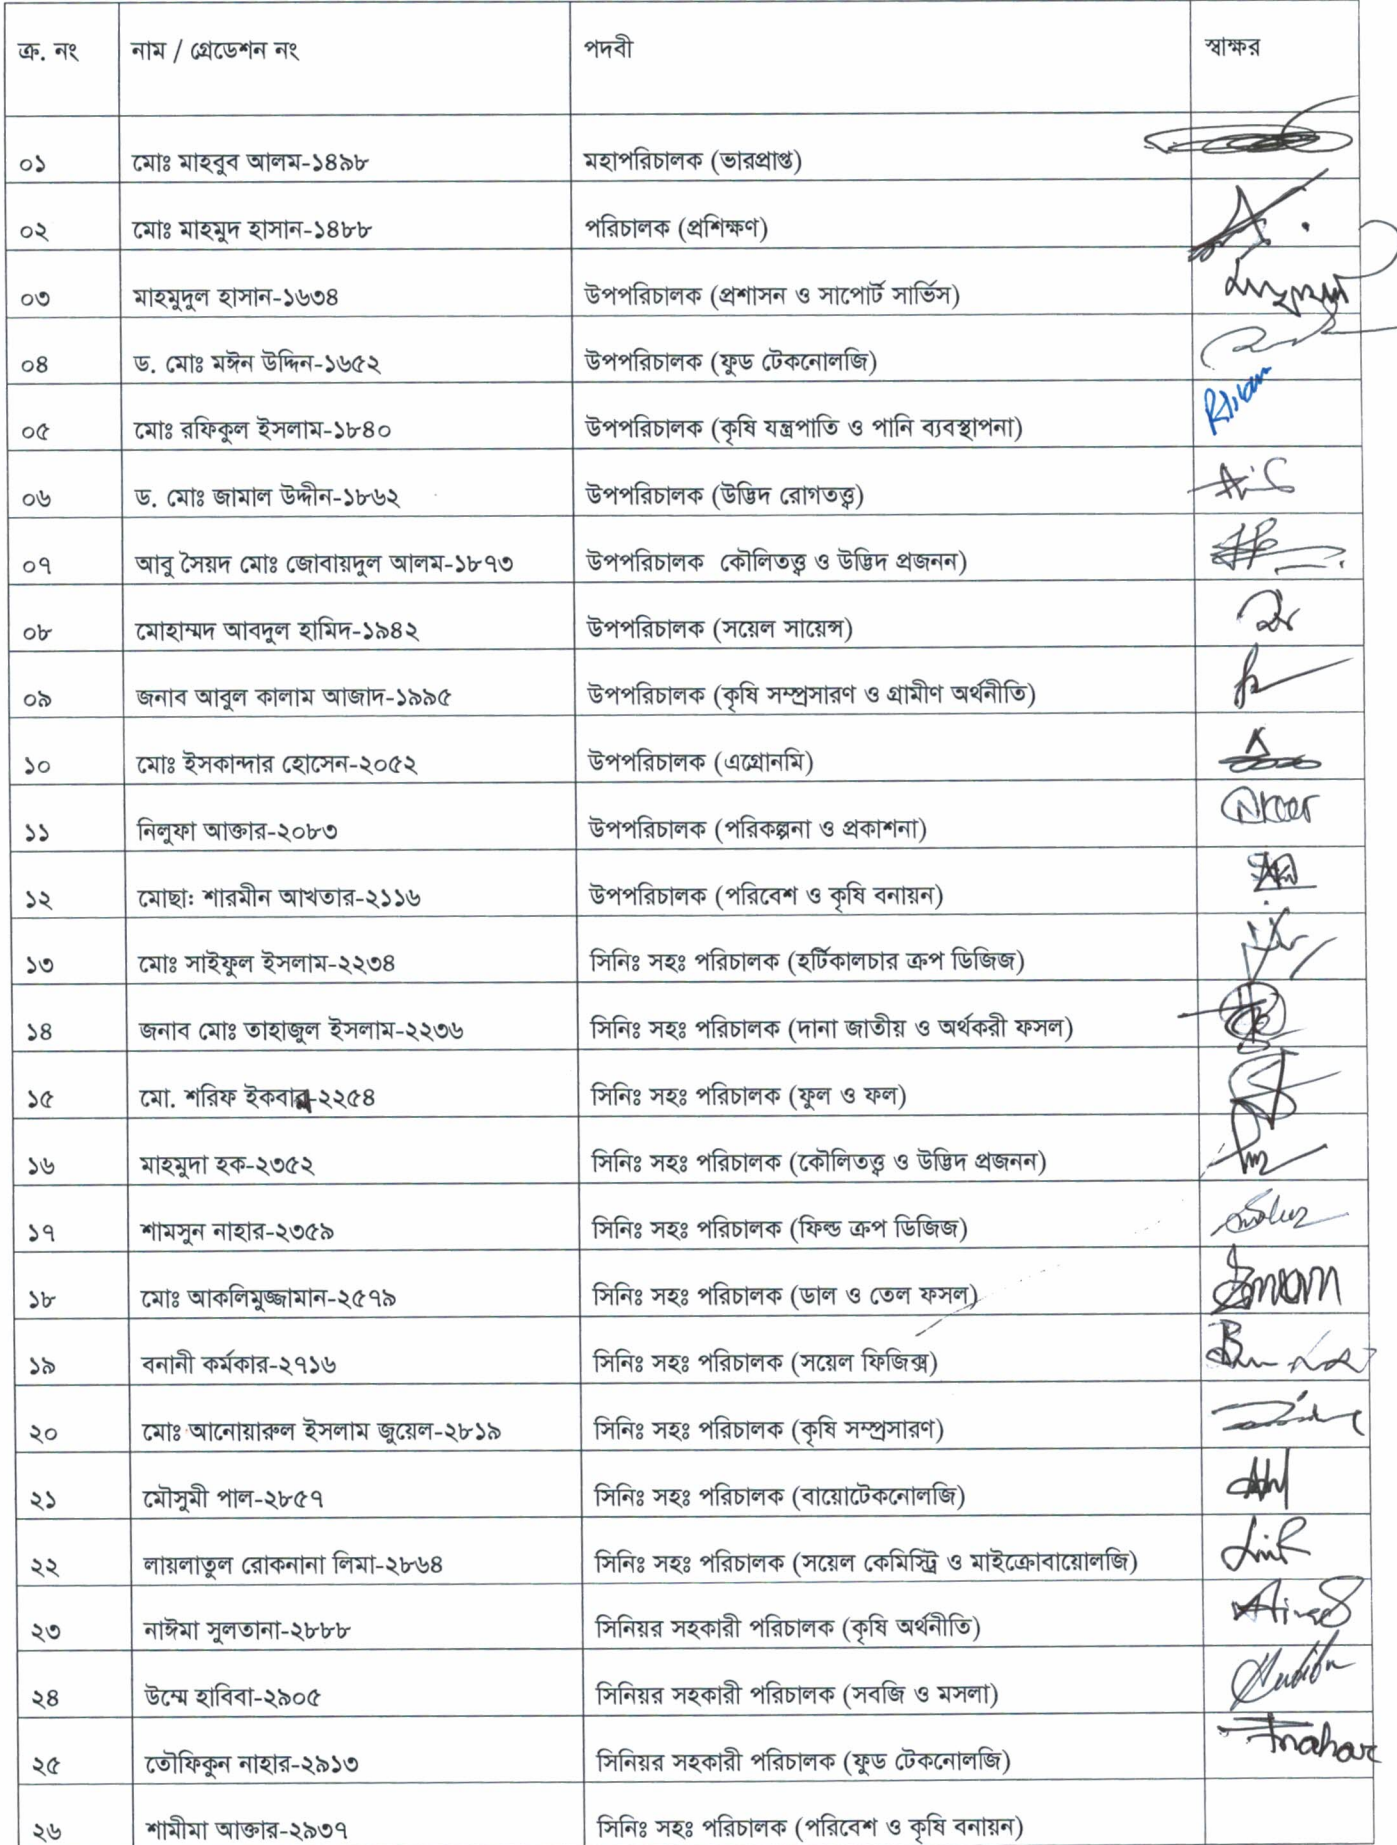 ক্র. নং নাম / গ্রেডেশন নং পদবী স্বাক্ষর
০১ মোঃ মাহবুব আলম-১৪৯৮ মহাপরিচালক (ভারপ্রাপ্ত)
০২ মোঃ মাহমুদ হাসান-১৪৮৮ পরিচালক (প্রশিক্ষণ)
০৩ মাহমুদুল হাসান-১৬৩৪ উপপরিচালক (প্রশাসন ও সাপোর্ট সার্ভিস)
০৪ ড. মোঃ মঈন উদ্দিন-১৬৫২ উপপরিচালক (ফুড টেকনোলজি)
০৫ মোঃ রফিকুল ইসলাম-১৮৪০ উপপরিচালক (কৃষি যন্ত্রপাতি ও পানি ব্যবস্থাপনা)
০৬ ড. মোঃ জামাল উদ্দীন-১৮৬২ উপপরিচালক (উদ্ভিদ রোগতত্ত্ব)
০৭ আবু সৈয়দ মোঃ জোবায়দুল আলম-১৮৭৩ উপপরিচালক কৌলিতত্ত্ব ও উদ্ভিদ প্রজনন)
০৮ মোহাম্মদ আবদুল হামিদ-১৯৪২ উপপরিচালক (সয়েল সায়েন্স)
০৯ জনাব আবুল কালাম আজাদ-১৯৯৫ উপপরিচালক (কৃষি সম্প্রসারণ ও গ্রামীণ অর্থনীতি)
১০ মোঃ ইসকান্দার হোসেন-২০৫২ উপপরিচালক (এগ্রোনমি)
১১ নিলুফা আক্তার-২০৮৩ উপপরিচালক (পরিকল্পনা ও প্রকাশনা)
১২ মোছা: শারমীন আখতার-২১১৬ উপপরিচালক (পরিবেশ ও কৃষি বনায়ন)
১৩ মোঃ সাইফুল ইসলাম-২২৩৪ সিনিঃ সহঃ পরিচালক (হর্টিকালচার ক্রপ ডিজিজ)
১৪ জনাব মোঃ তাহাজুল ইসলাম-২২৩৬ সিনিঃ সহঃ পরিচালক (দানা জাতীয় ও অর্থকরী ফসল)
১৫ মো. শরিফ ইকবাল-২২৫৪ সিনিঃ সহঃ পরিচালক (ফুল ও ফল)
১৬ মাহমুদা হক-২৩৫২ সিনিঃ সহঃ পরিচালক (কৌলিতত্ত্ব ও উদ্ভিদ প্রজনন)
১৭ শামসুন নাহার-২৩৫৯ সিনিঃ সহঃ পরিচালক (ফিল্ড ক্রপ ডিজিজ)
১৮ মোঃ আকলিমুজ্জামান-২৫৭৯ সিনিঃ সহঃ পরিচালক (ডাল ও তেল ফসল)
১৯ বনানী কর্মকার-২৭১৬ সিনিঃ সহঃ পরিচালক (সয়েল ফিজিক্স)
২০ মোঃ আনোয়ারুল ইসলাম জুয়েল-২৮১৯ সিনিঃ সহঃ পরিচালক (কৃষি সম্প্রসারণ)
২১ মৌসুমী পাল-২৮৫৭ সিনিঃ সহঃ পরিচালক (বায়োটেকনোলজি)
২২ লায়লাতুল রোকনানা লিমা-২৮৬৪ সিনিঃ সহঃ পরিচালক (সয়েল কেমিস্ট্রি ও মাইক্রোবায়োলজি)
২৩ নাঈমা সুলতানা-২৮৮৮ সিনিয়র সহকারী পরিচালক (কৃষি অর্থনীতি)
২৪ উম্মে হাবিবা-২৯০৫ সিনিয়র সহকারী পরিচালক (সবজি ও মসলা)
২৫ তৌফিকুন নাহার-২৯১৩ সিনিয়র সহকারী পরিচালক (ফুড টেকনোলজি)
২৬ শামীমা আক্তার-২৯৩৭ সিনিঃ সহঃ পরিচালক (পরিবেশ ও কৃষি বনায়ন)